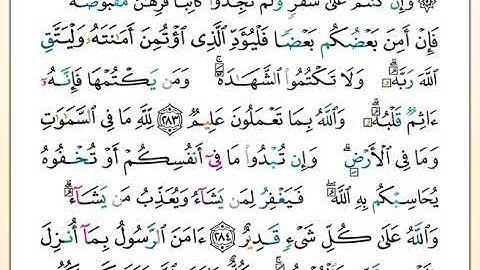 وَإِن كُنتُمْ عَلَىٰ سَفَرٍ وَلَمْ تَجِدُوا۟ كَاتِبًا فَرِهَٰنٌ مَّقْبُوضَةٌ ۖ
فَإِنْ أَمِنَ بَعْضُكُم بَعْضًا فَلْيُؤَدِّ ٱلَّذِى ٱؤْتُمِنَ أَمَٰنَتَهُۥ وَلْيَتَّقِ
ٱللَّهَ رَبَّهُۥ ۗ وَلَا تَكْتُمُوا۟ ٱلشَّهَٰدَةَ ۚ وَمَن يَكْتُمْهَا فَإِنَّهُۥٓ
ءَاثِمٌ قَلْبُهُۥ ۗ وَٱللَّهُ بِمَا تَعْمَلُونَ عَلِيمٌ ٢٨٣ لِّلَّهِ مَا فِى ٱلسَّمَٰوَٰتِ
وَمَا فِى ٱلْأَرْضِ ۗ وَإِن تُبْدُوا۟ مَا فِىٓ أَنفُسِكُمْ أَوْ تُخْفُوهُ
يُحَاسِبْكُم بِهِ ٱللَّهُ ۖ فَيَغْفِرُ لِمَن يَشَآءُ وَيُعَذِّبُ مَن يَشَآءُ ۗ
وَٱللَّهُ عَلَىٰ كُلِّ شَىْءٍ قَدِيرٌ ٢٨٤ ءَامَنَ ٱلرَّسُولُ بِمَآ أُنزِلَ